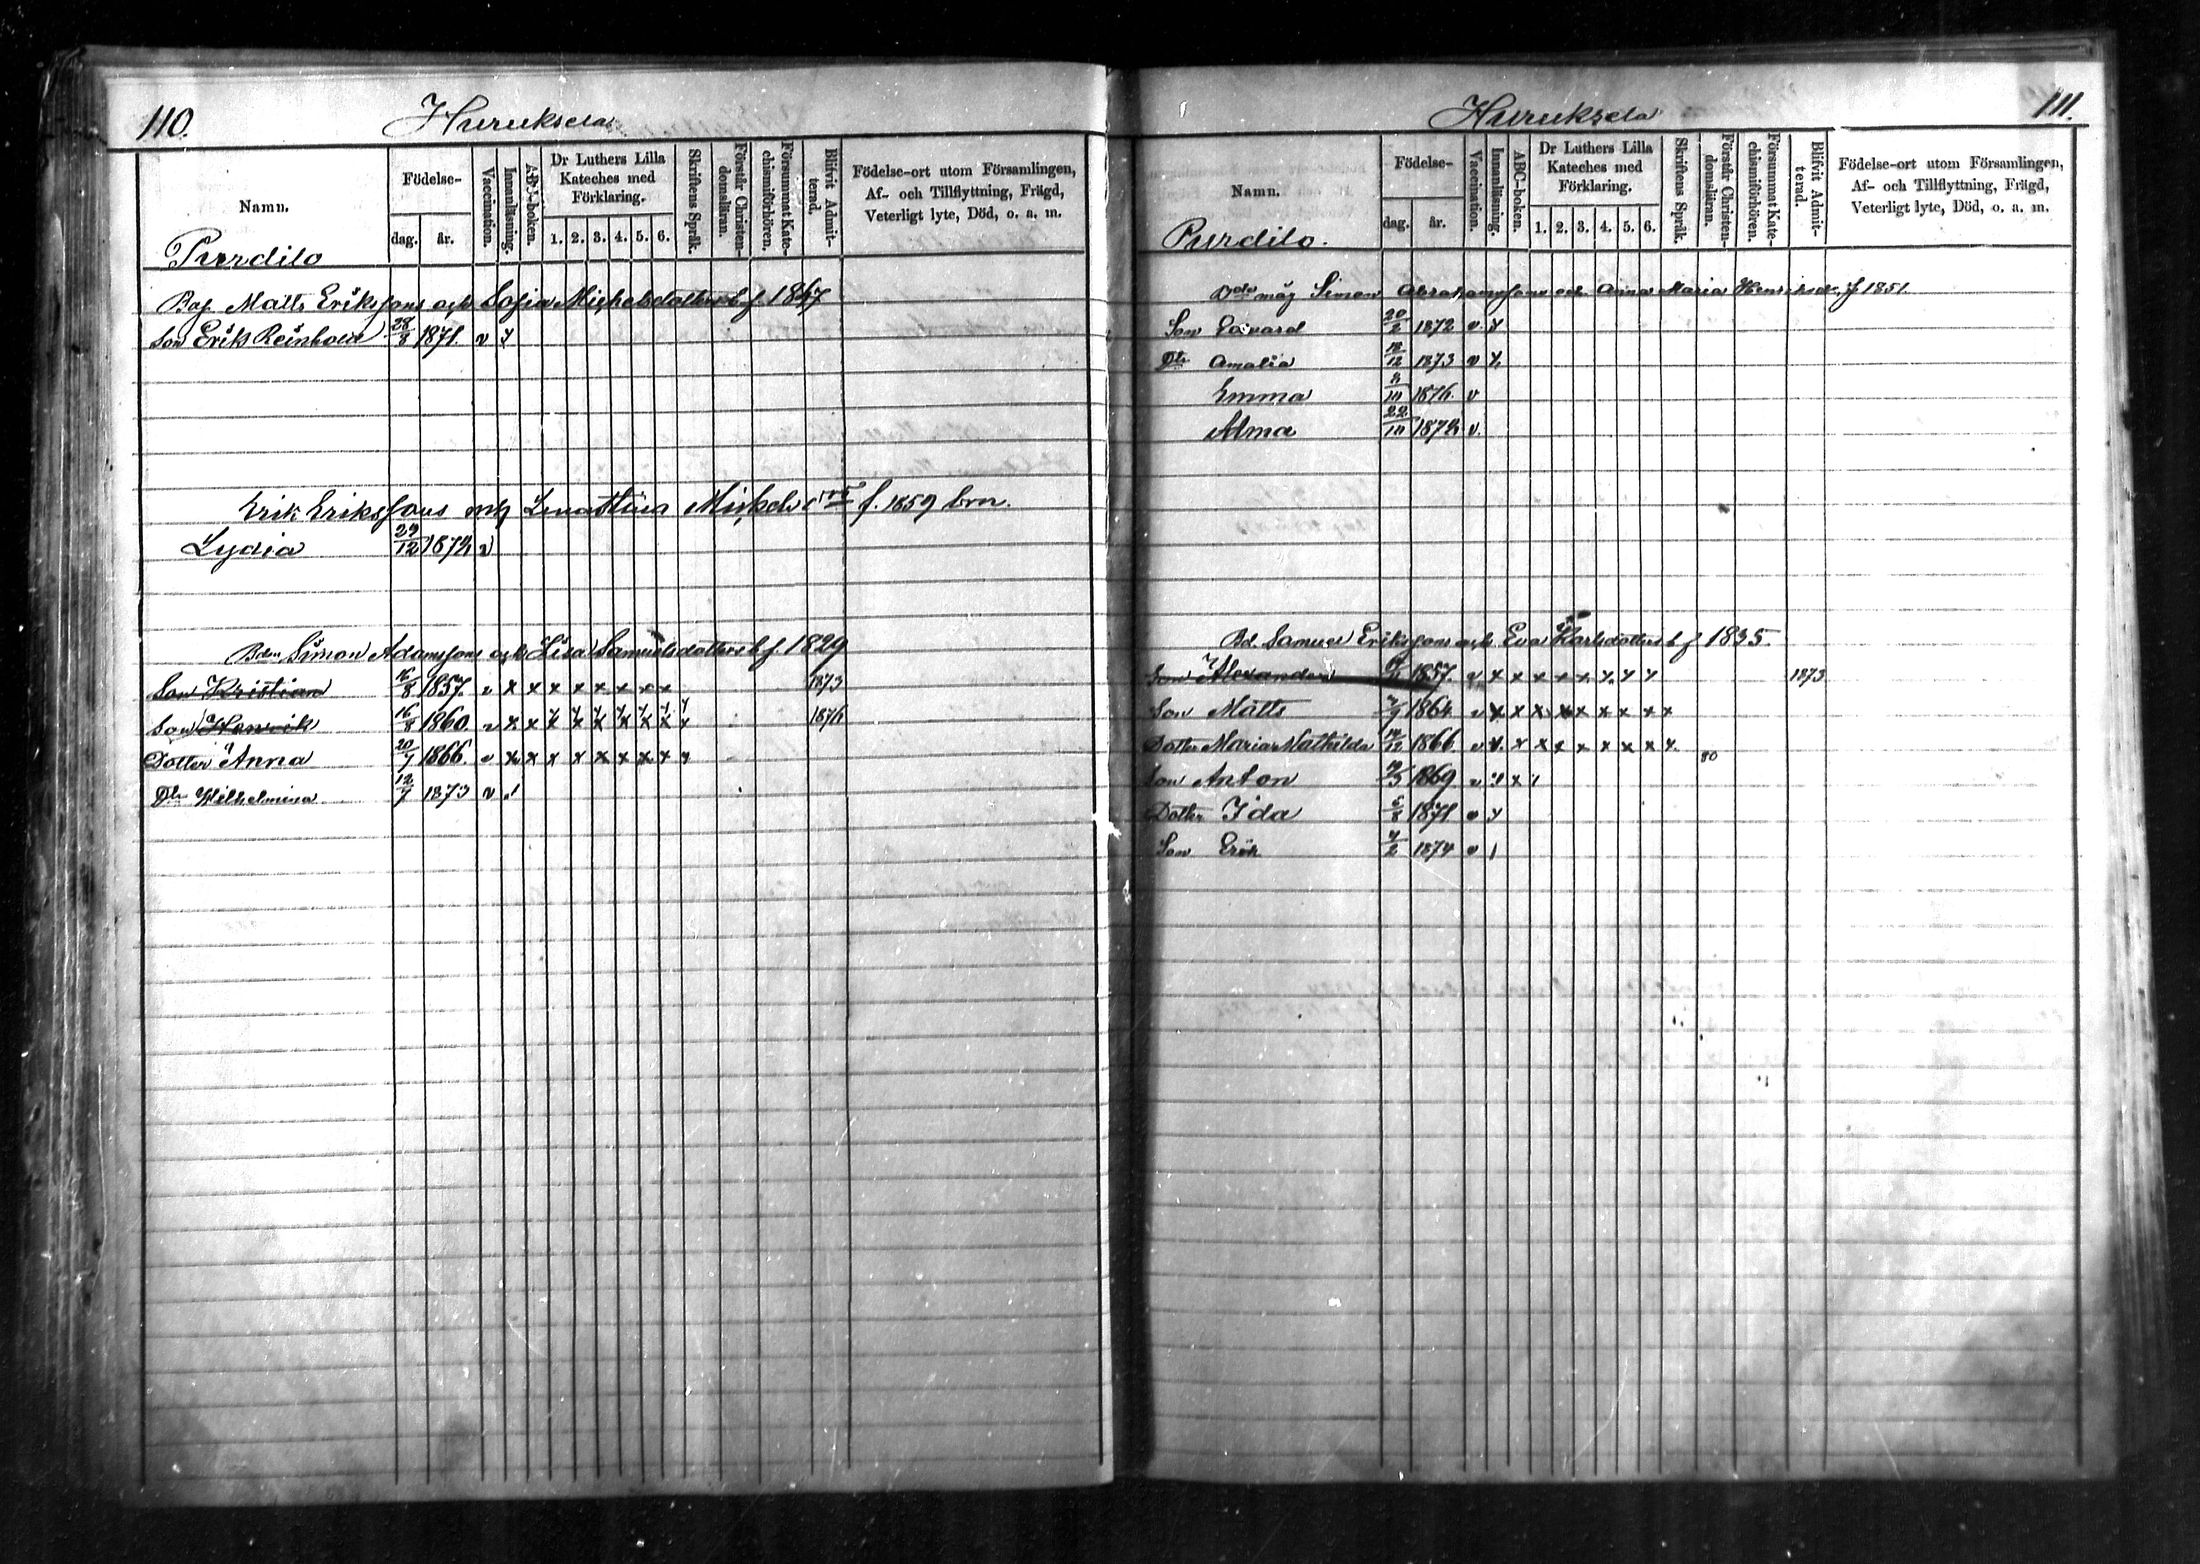 110.
Huruksela
Namn.
Födelse-
dag.
år.
Vaccination.
Innanläsning.
ABC-boken.
Dr Luthers Lilla
Kateches med
Förklaring.
1. 2. 3. 4. 5. 6.
Skriftens Språk.
Förstår Christen-
domsläran.
Försummat Kate-
chismiförhören.
Blifvit Admit-
terad.
Födelse-ort utom Församlingen,
Af- och Tillflyttning, Frägd,
Veterligt lyte, Död, o. a. m.
Purdilo
Matts Erikssons och Sofia Michelsdotters b f. 1847
Son Erik Reinhold 28/3 1871. v y
Erik Erikssons och Michelsd f. 1859 brn.
Lydia 29/12 1874 v
Bdn Simon Adamssons och Lisa Samuelsdotters b f. 1829
Son Kristian 16/8 1857. v x x x x x x x x 1873
Son Henrik 16/8 1860. v x x x x x x x x y 1876
Dotter Anna 20/7 1866. v x x x x x x x x y
Dtr Wilhelmina 12/7 1873 v
111.
Huruksela
Namn.
Födelse-
dag.
år.
Vaccination.
Innanläsning.
ABC-boken.
Dr Luthers Lilla
Kateches med
Förklaring.
1. 2. 3. 4. 5. 6.
Skriftens Språk.
Förstår Christen-
domsläran.
Försummat Kate-
chismiförhören.
Blifvit Admit-
terad.
Födelse-ort utom Församlingen,
Af- och Tillflyttning, Frägd,
Veterligt lyte, Död, o. a. m.
Purdilo.
måg Simon Abrahamssons och Anna Maria Henriksd f 1851.
Son Edvard 20/2 1872 v. y
Dtr Amalia 18/12 1873 v y.
Emma 3/10 1876. v
Alma 22/10 v.
Bd. Samuel Erikssons och Eva Karlsdotters b f 1835.
Son Alexander 1857. v x x x x x y y y 1873
Son Matts 1864 v x x x x x x x x x
Dotter Maria Mathilda 14/12 1866 v y. x x x x x x x x. 80
Son Anton 1869 v y x
Dotter Ida 1871 v y
Son Erik 1874 v